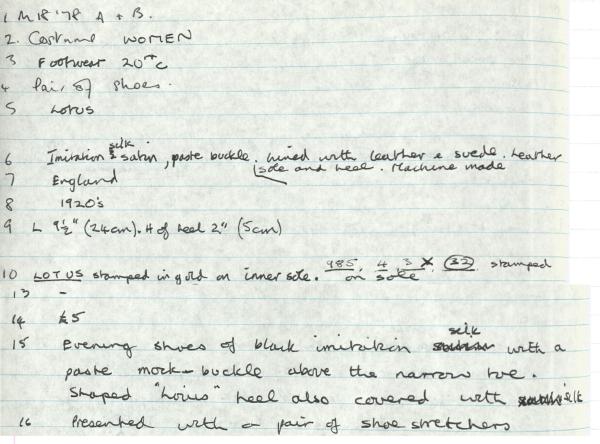 1 M18'78 A + B.
2. Costume WOMEN
3 Footwear 20th C
4 Pair of shoes.
5 Lotus
6 Imitation silk satin, paste buckle. Lined with leather & suede. Leather
sole and heel. Machine made
7 England
8 1920's
9 L 9½" (24cm). H of heel 2" (5cm)
10 LOTUS stamped in gold on inner sole. 985, 4 3 X (32) stamped
on sole
13 -
14 £5
15 Evening shoes of black imitation silk with a
paste mock-buckle above the narrow toe.
Shaped "Louis" heel also covered with silk
16 Presented with a pair of shoe stretchers